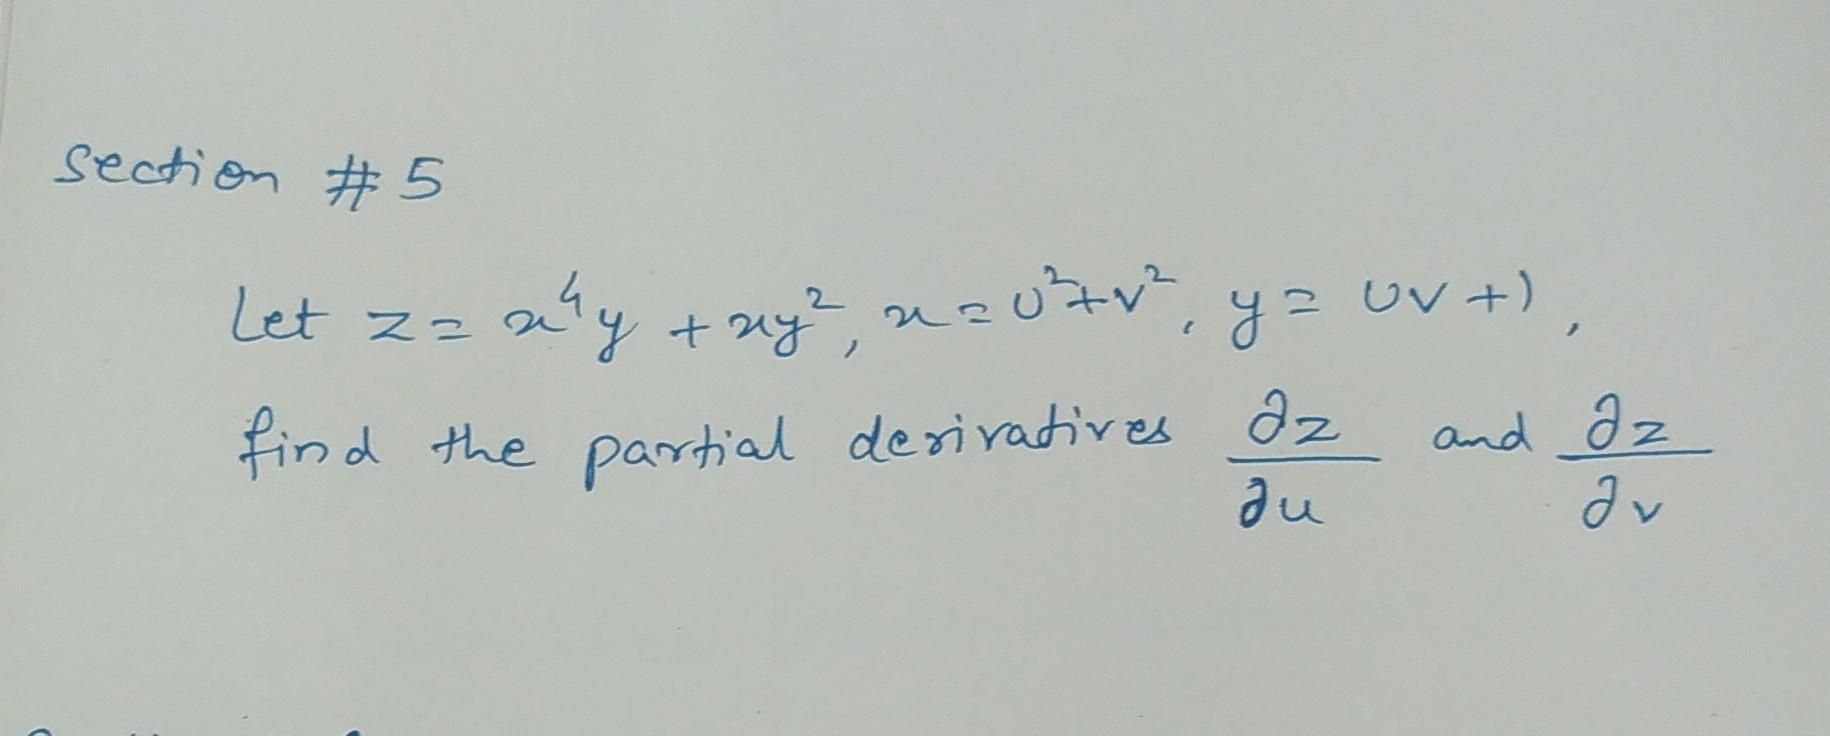 Section #5
Let z = x⁴y + xy², x = u²+v², y = uv+1,
find the partial derivatives ∂z/∂u and ∂z/∂v